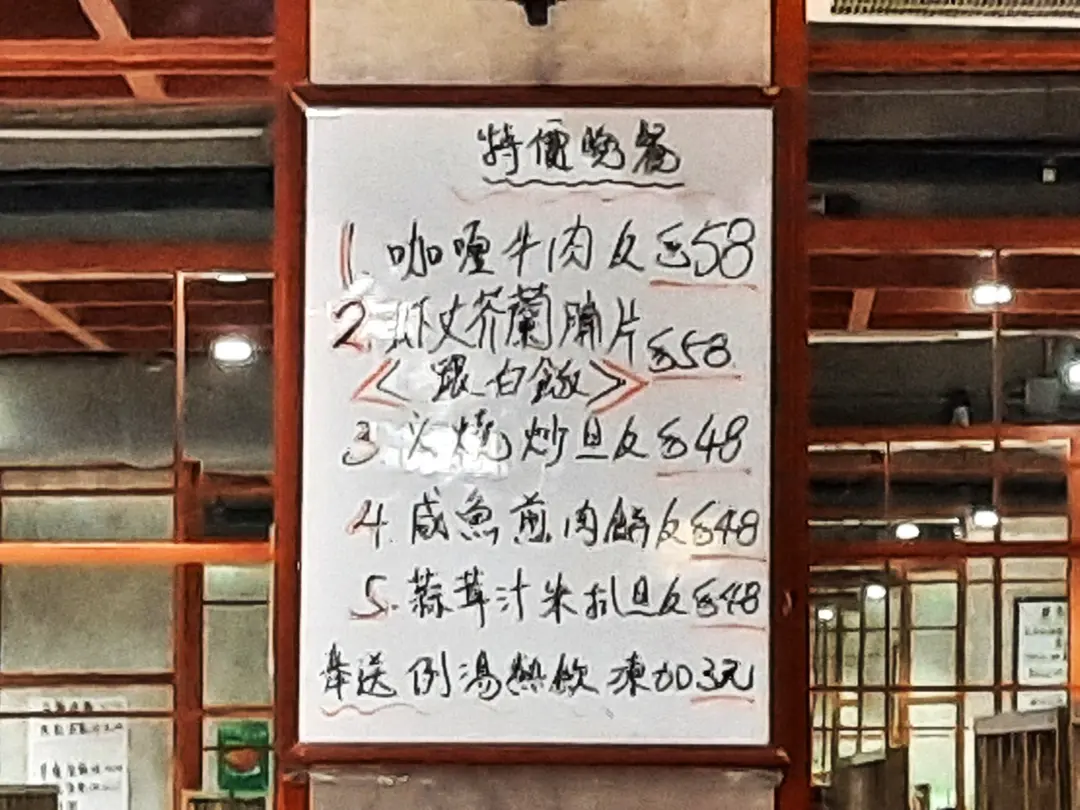 特價晚餐
1. 咖喱牛肉反 $58
2. 虾丈芥蘭腩片 $58
〈跟白飯〉
3 叉燒炒旦反 $48
4. 咸魚煎肉餅反 $48
5. 蒜茸汁朱扒旦反 $48
奉送 例湯熱飲 凍加3元